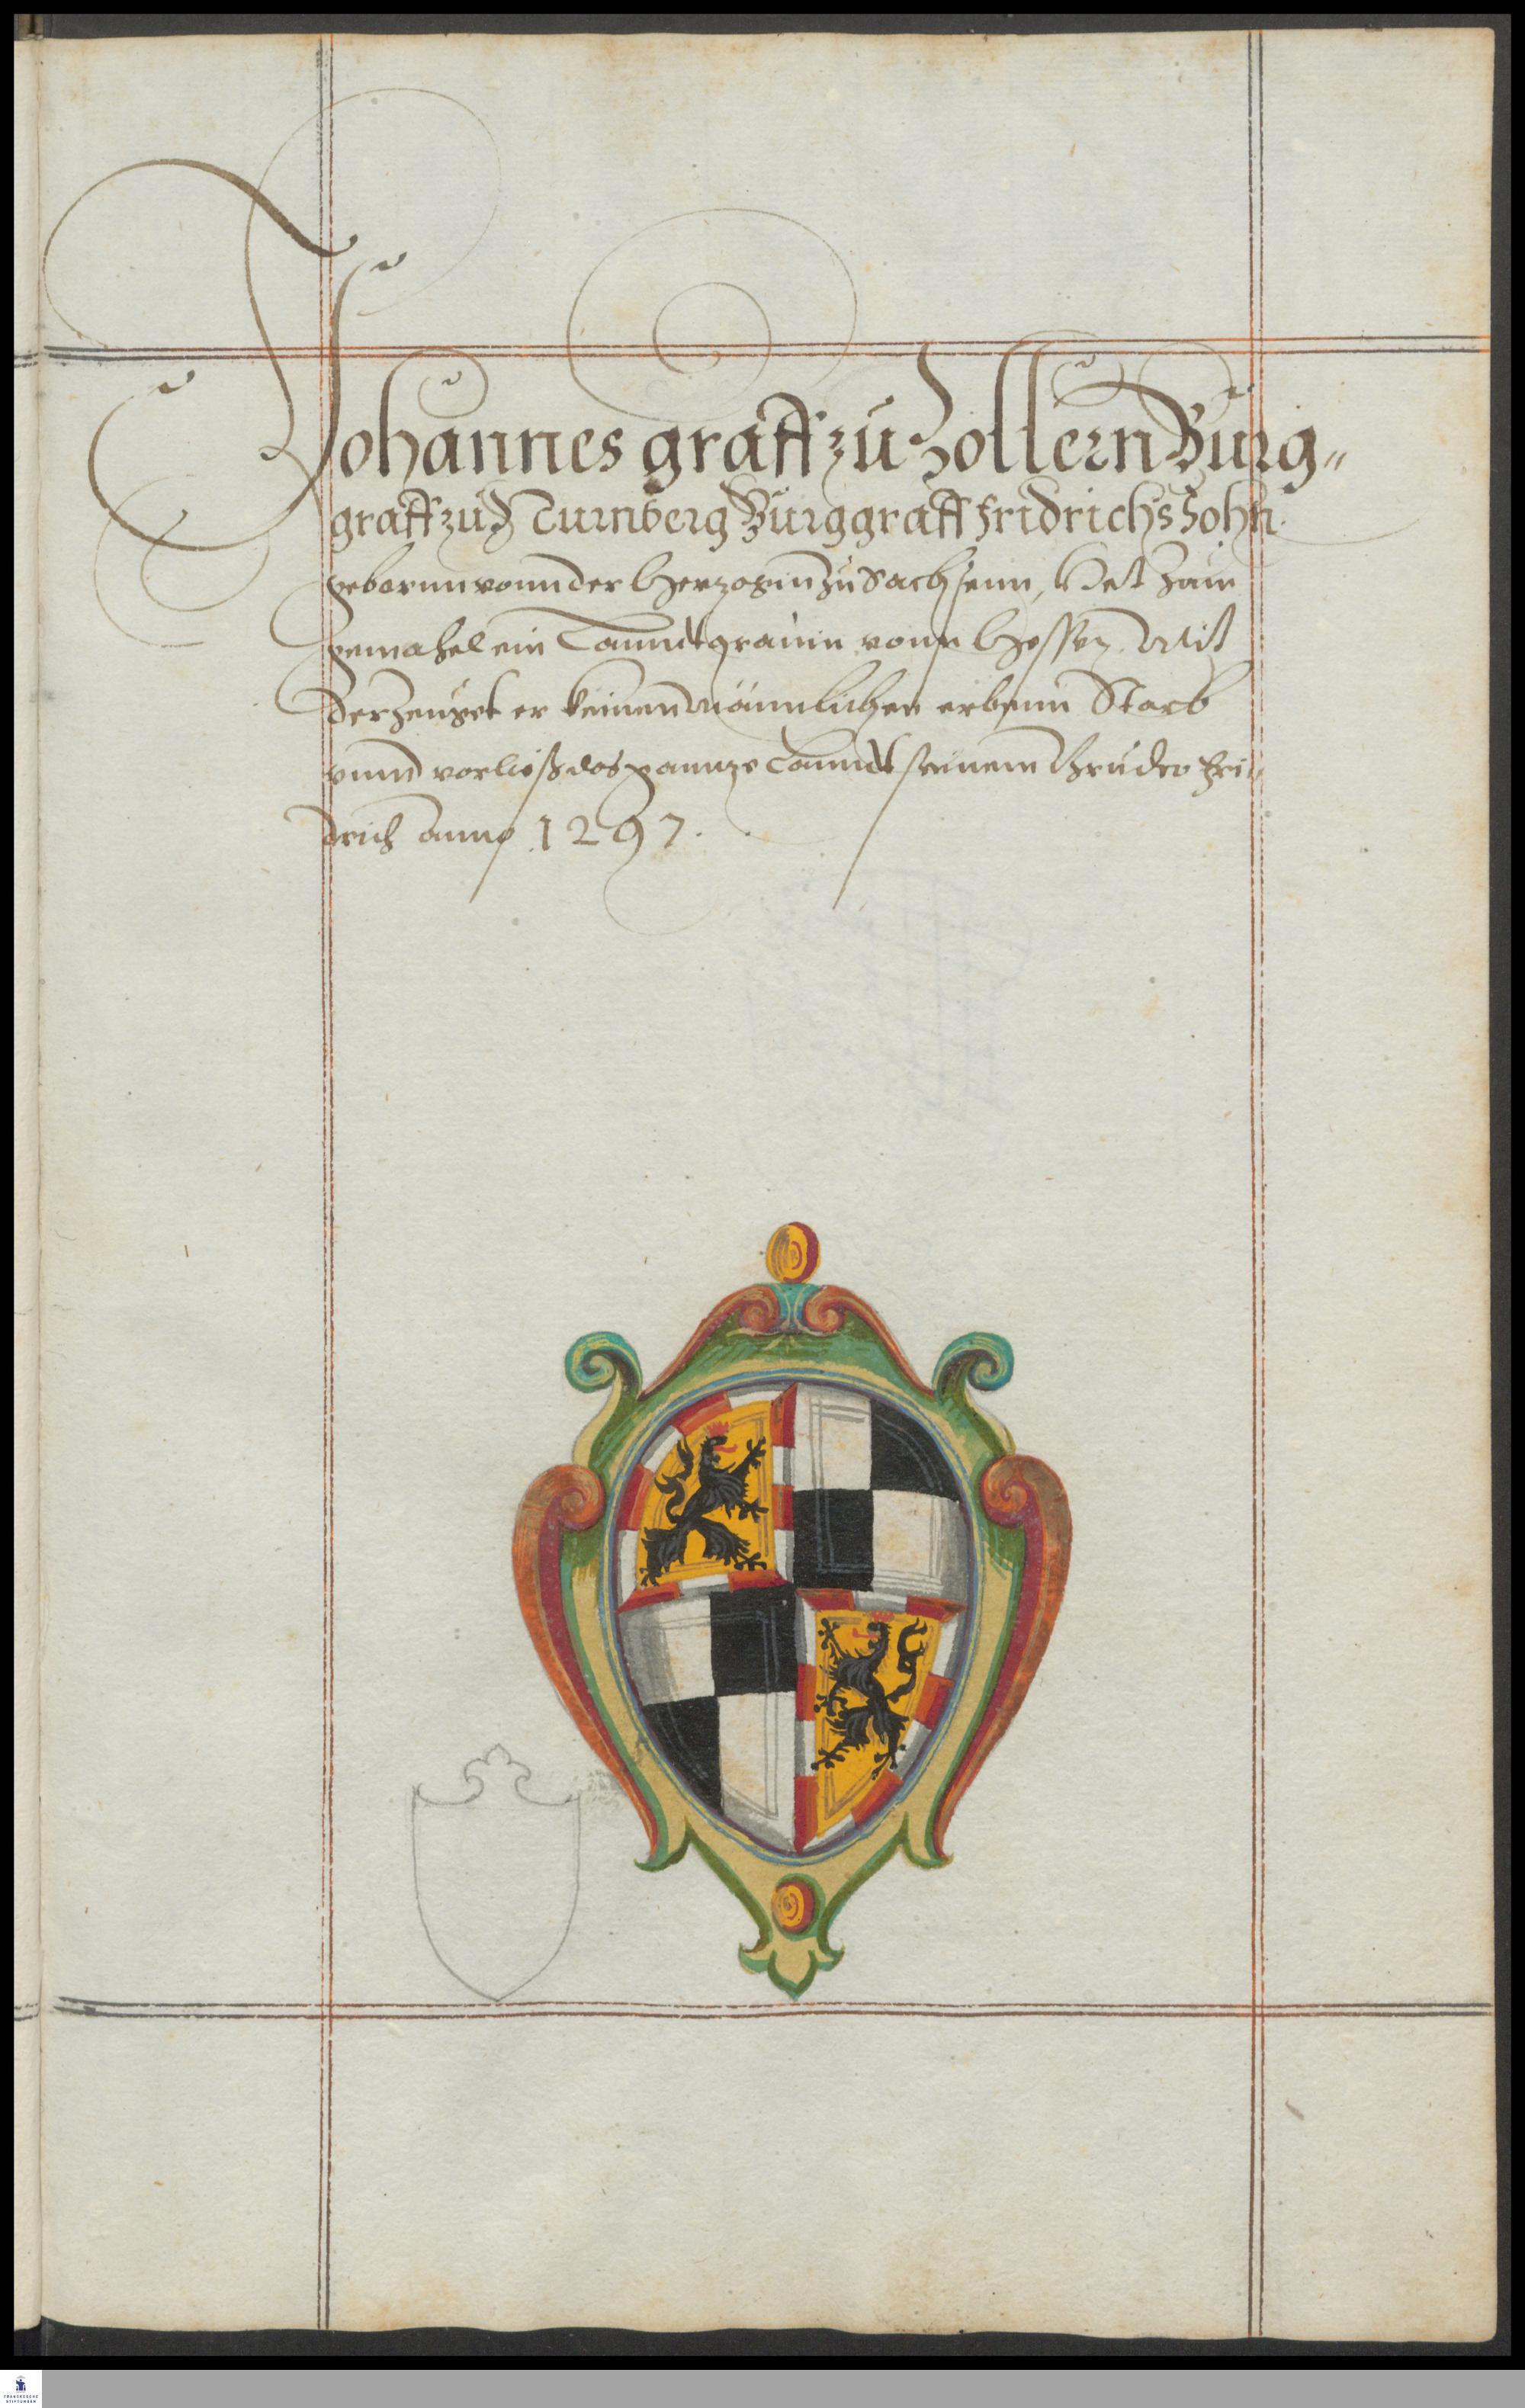 Johannes graff zu Zollern Burg=
graff zu Nurnberg Burggraff Fridrichs Sohn.
gebornn vonn der Hertzogin zu Sachssenn, Het zum
gemahel ein Lanndtgrauin vonn Hessen. Mit
der zeuget er keinen Männlichen erbenn Starb
vnnd verließ das gannze Lanndt seinem Bruder Fri=
drich anno 1297.
FRANCKESCHE
STIFTUNGEN